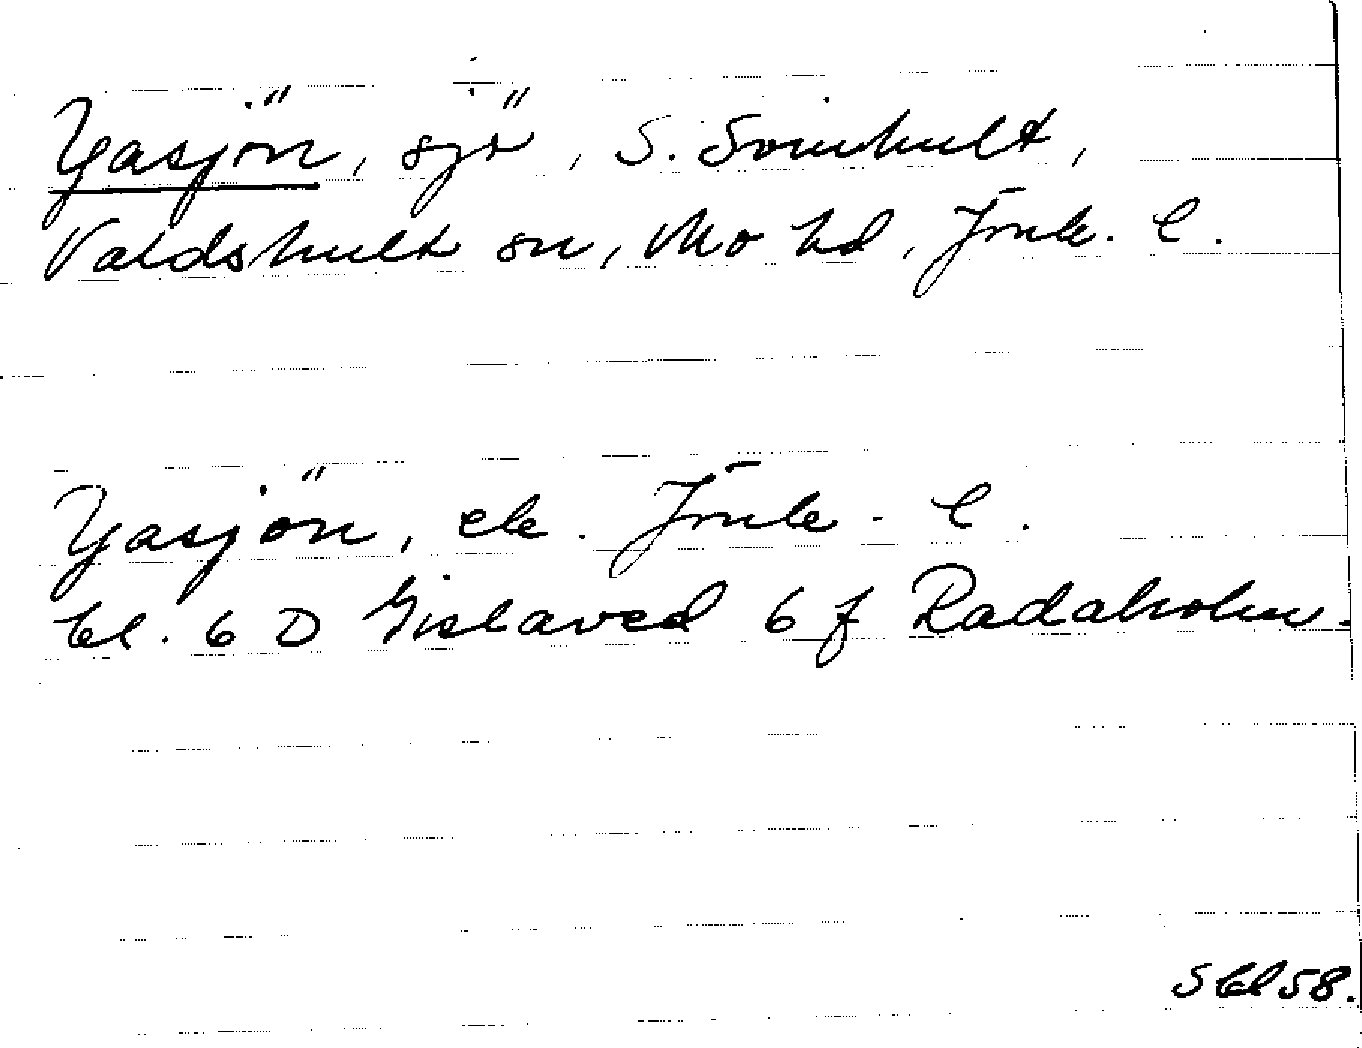 Yasjön, sjö, S. Svinhult,
Valdshult sn, Mo hd, Jönk. l.
Yasjön, ek. Jönk. l.
bl. 6 D Gislaved 6 f Radaholm.
S bl 58.